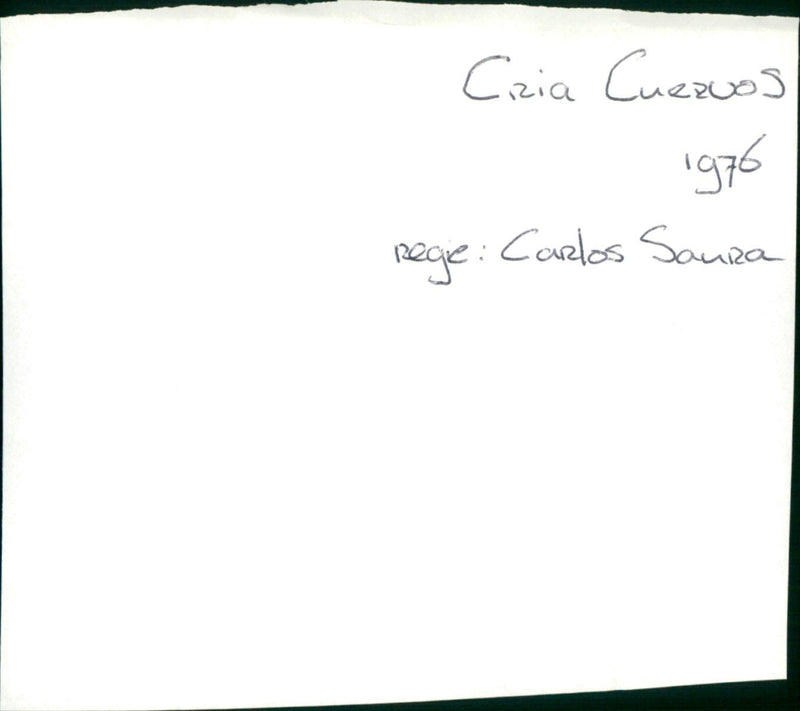 Cria Cuervos
1976
regie: Carlos Saura